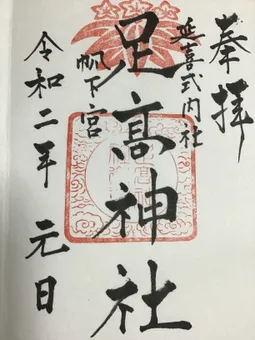 奉拝
延喜式内社
足高神社
帆下宮
令和二年 元日